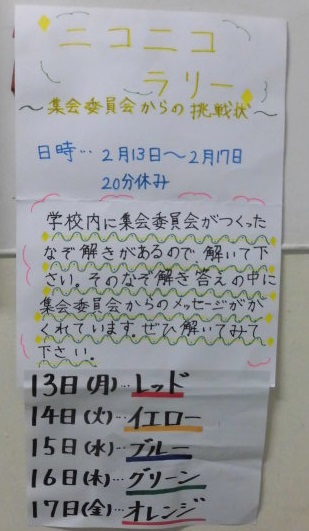 ニコニコ
ラリー
～集会委員会からの挑戦状～
日時…2月13日～2月17日
20分休み
学校内に集会委員会がつくった
なぞ解きがあるので解いて下
さい。そのなぞ解き答えの中に
集会委員会からのメッセージがか
くれています。ぜひ解いてみて
下さい。
13日(月)…レッド
14日(火)…イエロー
15日(水)…ブルー
16日(木)…グリーン
17日(金)…オレンジ